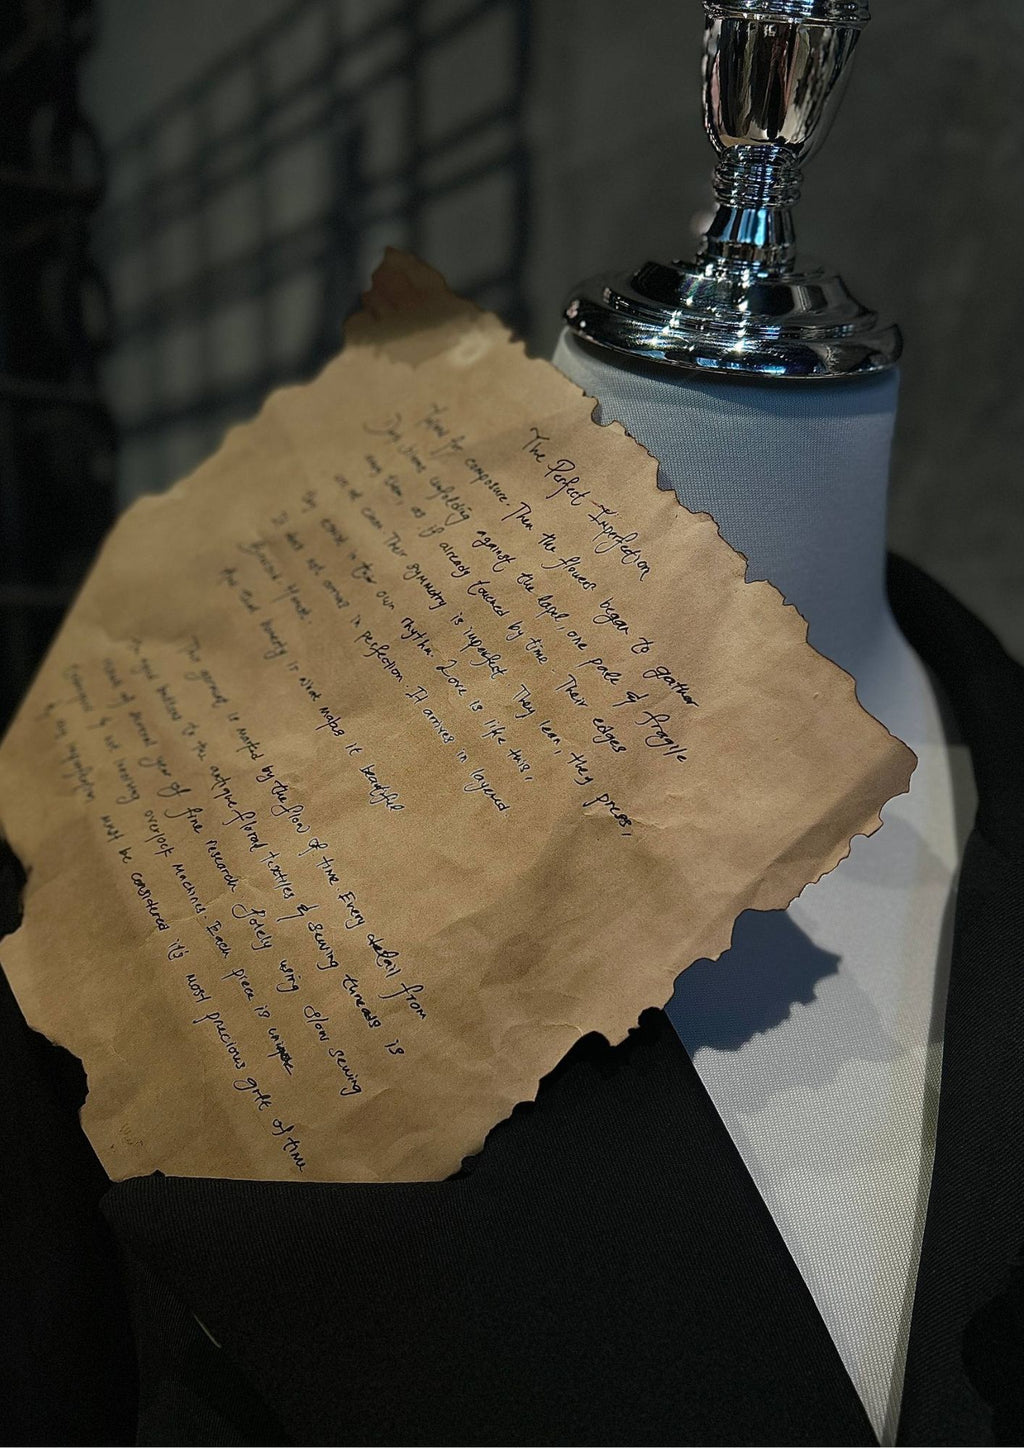 The Perfect Imperfection
for composure. Then the flower began to gather
unfolding against the lapel, one pale & fragile
as if already touched by time Their edges
Their symmetry is imperfect They lean, they press,
in their own rhythm. Love is like this,
It does not arrive in perfection. It arrives in layered
And that honesty is what makes it beautiful
This garment is marked by the flow of time Every detail from
to the antique floral textiles & sewing threads is
of several year of fine research Solely using slow sewing
& not involving overlock machines. Each piece is unique
& any imperfection must be considered it's most precious gift of time